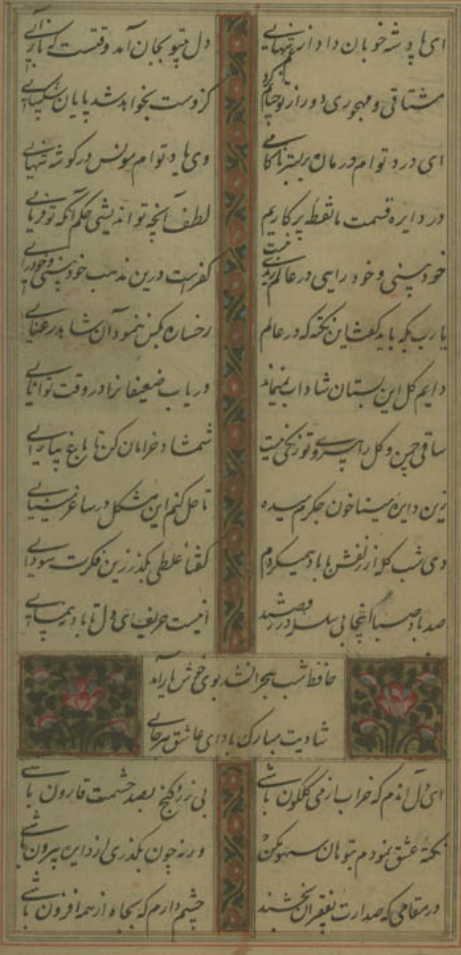 ای پادشه خوبان داد از غم تنهایی دل بی تو بجان آمد وقتست که بازآیی
مشتاقی و مهجوری دور از تو چنانم کرد کز دست بخواهد شد پایان شکیبایی
ای درد توام درمان بر بستر ناکامی وی یاد توام مونس در گوشه تنهایی
در دایره قسمت ما نقطه پرکاریم لطف آنچه تو اندیشی حکم آنکه تو فرمایی
خودبینی و خودرایی در عالم رندی نیست کفرست درین مذهب خودبینی و خودرایی
یارب بکه باید گفت این نکته که در عالم رخساره بکس ننمود آن شاهد رعنایی
دایم گل این بستان شاداب نمیماند دریاب ضعیفانرا در وقت توانایی
ساقی چمن و گل را بی روی تو رنگی نیست شمشاد خرامان کن تا باغ بیارایی
زین دایره مینا خون جگرم می ده تا حل کنم این مشکل در ساغر مینایی
دی شب گله زلفش با باد همیکردم گفتا غلطی بگذر زین فکرت سودایی
صد باد صبا اینجا با سلسله در رقصند اینست حریف ای دل تا باد نپیمایی
حافظ شب هجران شد بوی خوش یار آمد
شادیت مبارک باد ای عاشق هرجایی
ای دل آندم که خراب از می گلگون باشی بی زر و گنج بصد حشمت قارون باشی
نکته عشق نمودم بتو هان سهو مکن ورنه چون بگذری از دایره بیرون باشی
در مقامی که صدارت بفقیران بخشند چشم دارم که بجاه از همه افزون باشی